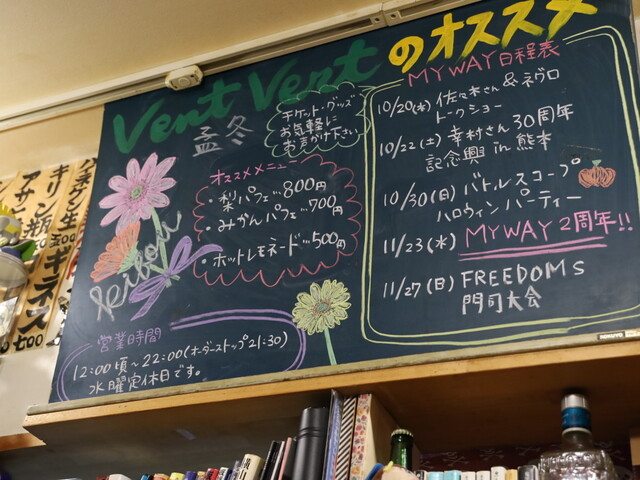 Vent Ventのオススメ
孟冬
チケット・グッズ
お気軽に
お声かけ下さい
オススメメニュー
・梨パフェ…800円
・みかんパフェ…700円
・ホットレモネード…500円
営業時間
12:00頃~22:00(オーダーストップ21:30)
水曜定休日です。
MYWAY日程表
10/20(木) 佐々木さん&ネグロ
トークショー
10/22(土) 幸村さん30周年
記念興 in 熊本
10/30(日) バトルスコープ
ハロウィンパーティー
11/23(水) MYWAY2周年!!
11/27(日) FREEDOMs
門司大会
キリン瓶
ギネス